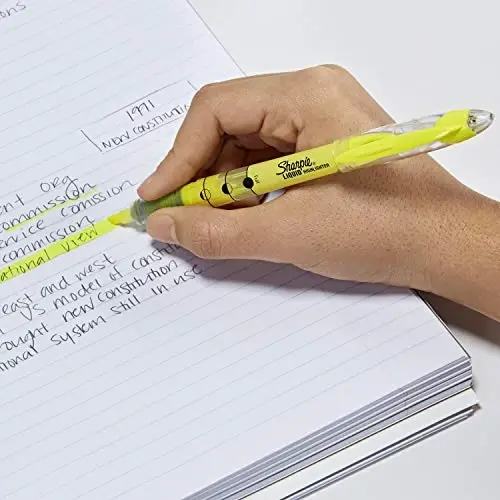 ons
1971
new constitution
ent org
commission
ervice comission
commission
ational view
east and west
's model of constit
ought new constitution
tional system still in use
Sharpie®
LIQUID HIGHLIGHTER